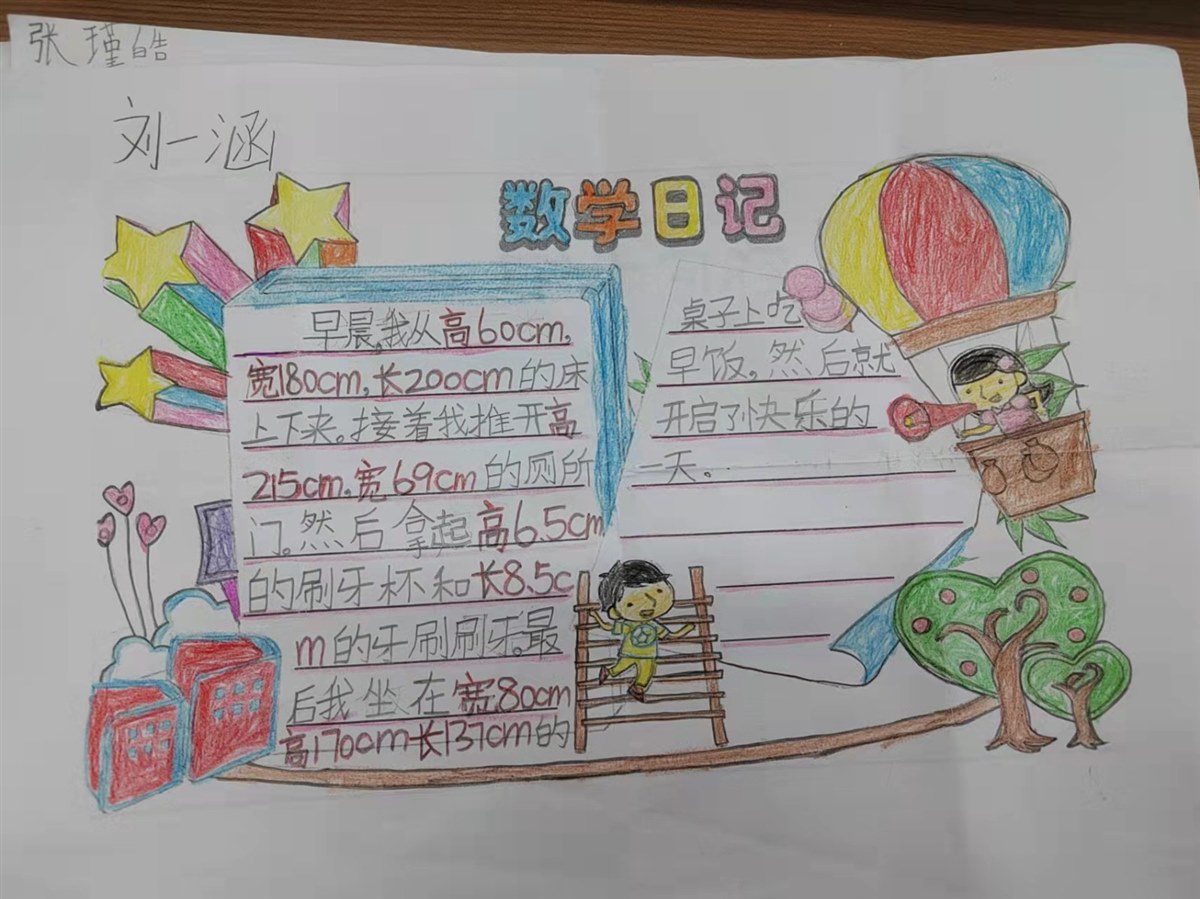 张瑾皓
刘一涵
数学日记
早晨,我从高60cm,
宽180cm,长200cm的床
上下来。接着我推开高
215cm.宽69cm的厕所
门。然后拿起高6.5cm
的刷牙杯和长8.5c
m的牙刷刷牙。最
后我坐在宽80cm
高170cm长137cm的
桌子上吃
早饭。然后就
开启了快乐的
一天。